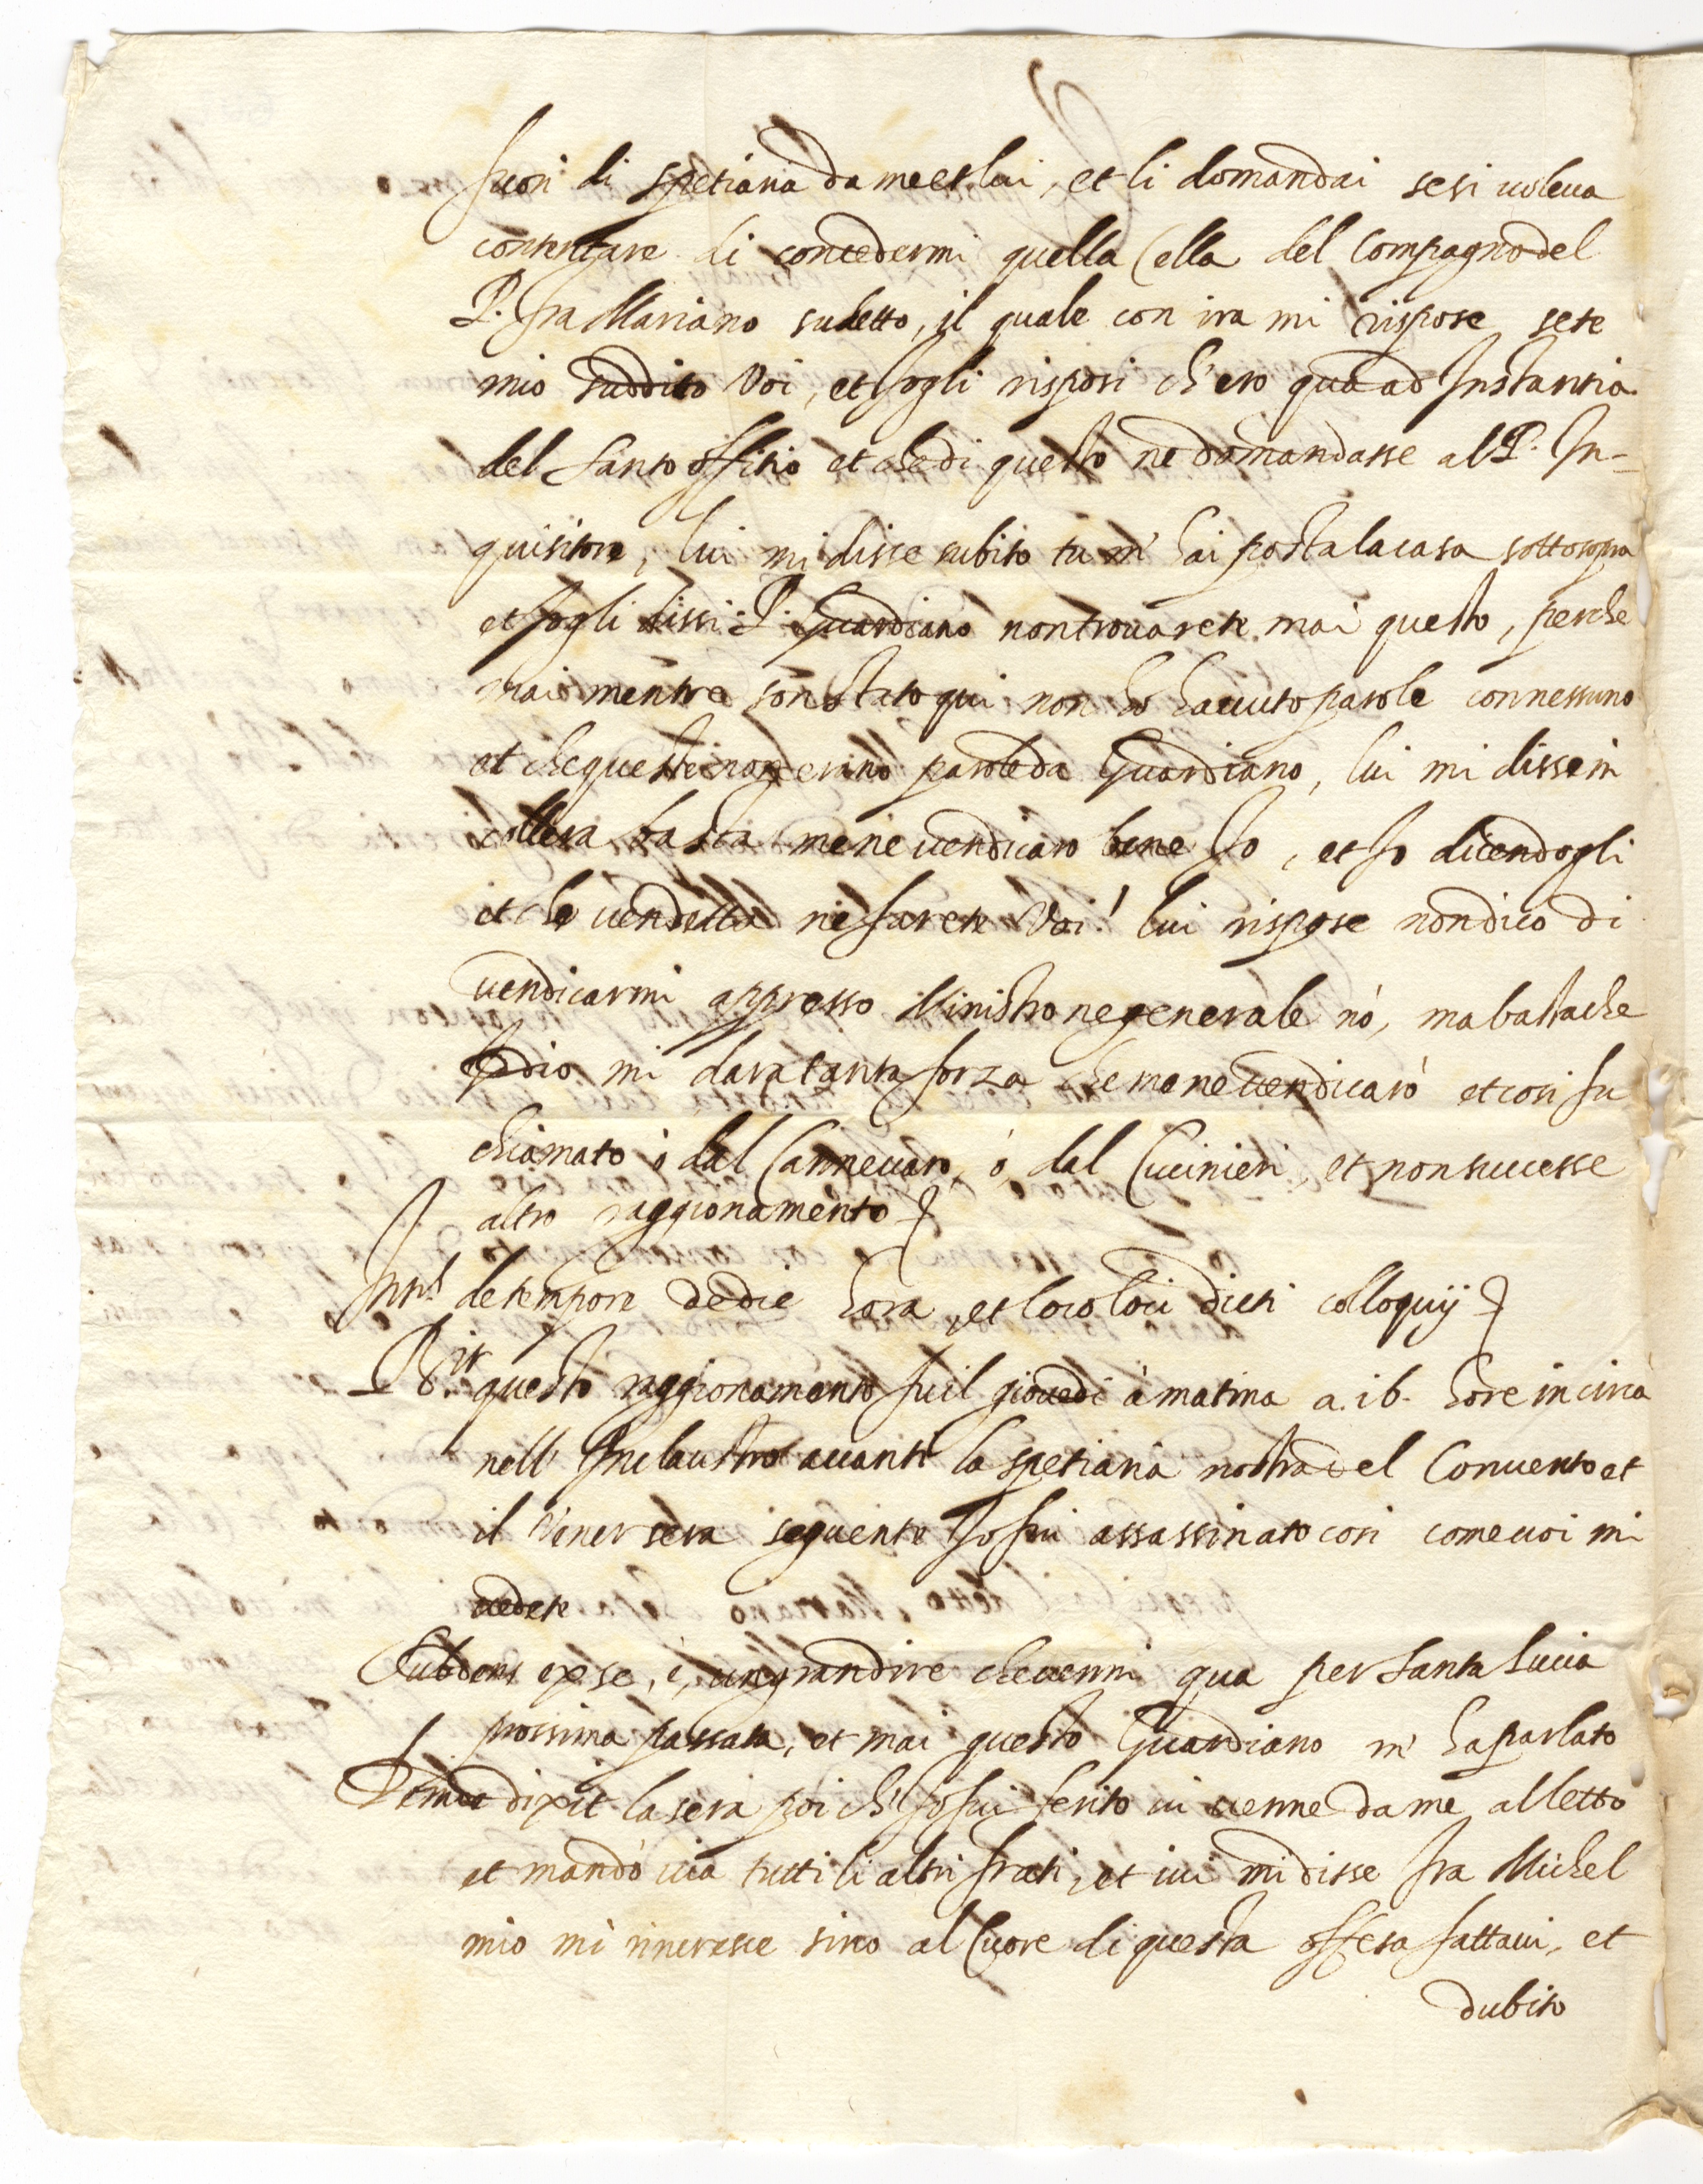 fuori di spetiaria da me et lui, et li domandai se si uoleua
contentare di concedermi quella Cella del Compagno del
P. fra Mariano sudetto, il quale con ira mi rispose sete
mio suddito Voi, et Io gli risposi ch'ero qua ad Instantia
del Santo offitio et che di questo ne domandasse al P. In-
quisitore, lui mi disse subito tu m' hai posta la casa sottosopra
et Io gli dissi P. Guardiano non trouarete mai questo, perche
mai mentre son stato qui non ho hauuto parole con nessuno
et che queste non erano parole da Guardiano, lui mi disse in
collera basta me ne uendicaro bene Io, et Io dicendogli
et che uendetta ne farete Voi! lui rispose non dico di
uendicarmi appresso Ministro ne generale nò, ma basta che
Iddio mi dara tanta forza che me ne uendicarò et cosi fu
chiamato ò dal Canneuaro, ò, dal Cucinieri, et non successe
altro raggionamento
Intˢ de tempore de die hora, et loco loci dicti colloquij
Rˢᵖ questo raggionamento fu il giouedi à matina a. 16. hore in circa
nell' Inclaustro auanti la spetiaria nostra del Conuento et
il Vener sera seguente Io fui assassinato cosi come uoi mi
uedete
Subdens ex se, è, un gran dire che uenni qua per santa Lucia
prossima passata, et mai questo Guardiano m' ha parlato
Deinde dixit la sera poi ch' Io fui ferito ui uenne da me al letto
et mandò uia tutti li altri frati, et iui mi disse fra Michel
mio mi rincresce sino al Cuore di questa offesa fattaui, et
dubito